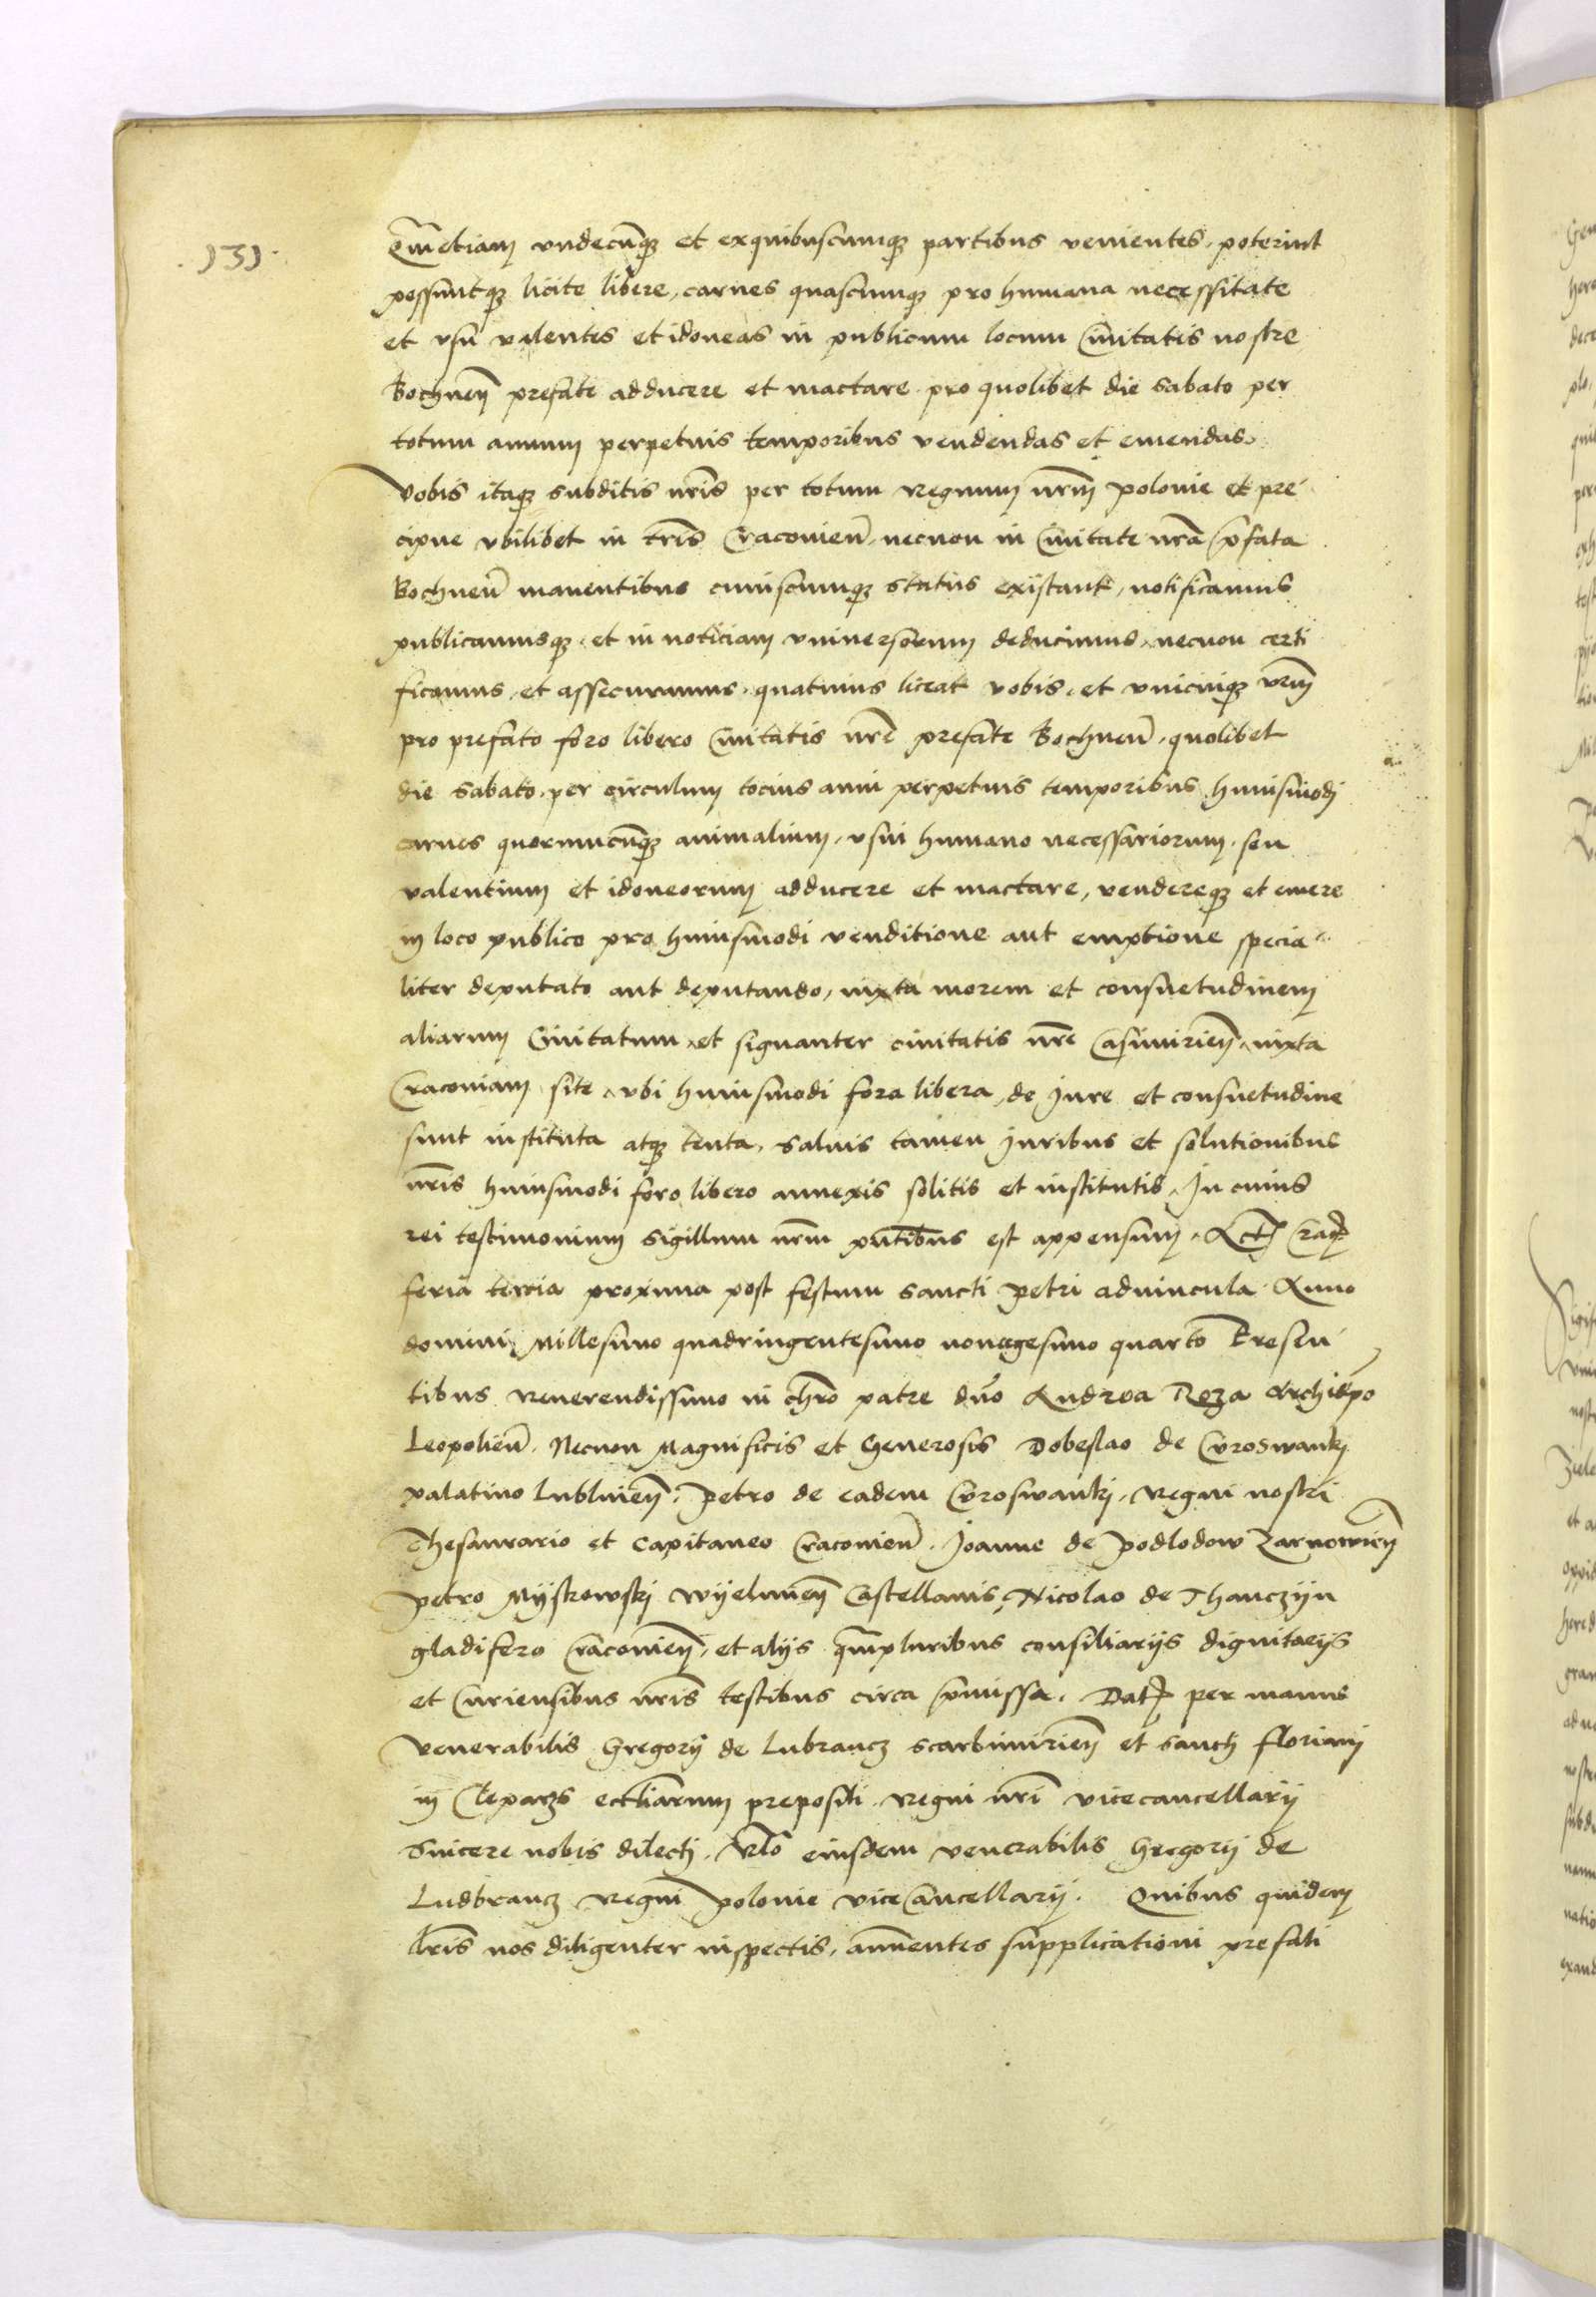 .131.
Quinetiam undecunq3 et exquibuscumq3 partibus venientes, poterint
possuntq3 licite libere, carnes quascumq3 pro humana necessitate
et usu valentes et idoneas in publicum locum Civitatis nostre
Bochnen̄ prefate adducere et mactare pro quolibet die sabato per
totum annum perpetuis temporibus vendendas et emendas,
Vobis itaq3 subditis nr̄is per totum Regnum nr̄m Polonie et pre
cipue ubilibet in tr̄is Cracovien̄, necnon in Civitate nr̄a p̄fata
Bochnen̄ manentibus cuiuscumq3 status existant, notificamus
publicamusq3, et in noticiam universorum deducimus, necnon certi
ficamus, et assecuramus, quatinus liceat vobis, et unicuiq3 vr̄m
pro prefato foro libero Civitatis nr̄e prefate Bochnen̄, quolibet
die sabato, per circulum tocius anni perpetuis temporibus, huiusmodi
carnes quorumcunq3 animalium, usui humano necessariorum, seu
valentium et idoneorum adducere et mactare, vendereq3 et emere
in loco publico pro huiusmodi venditione aut emptione specia
liter deputato aut deputando, iuxta morem et consuetudinem
aliarum Civitatum, et signanter civitatis nr̄e Casimirien̄, iuxta
Cracoviam site, ubi huiusmodi fora libera, de jure et consuetudine
sunt instituta atq3 tenta, salvis tamen juribus et solutionibus
nr̄is huiusmodi foro libero annexis solitis et institutis, In cuius
rei testimonium sigillum nr̄m pn̄tibus est appensum. Act̄ Crac̄
feria tercia proxima post festum sancti Petri advincula Anno
domini Millesimo quadringentesimo nonagesimo quarto Presen
tibus Reverendissimo in chr̄o patre dn̄o Andrea Roza Archiep̄o
Leopolien̄, Necnon Magnificis et Generosis Dobeslao de Curoswanki
palatino Lublinen̄, Petro de eadem Curoswanki, Regni nostri
Thesaurario et Capitaneo Cracovien̄, Joanne de Podlodow Zarnowien̄
Petro Myskowski Wyelunen̄ Castellanis, Nicolao de Thanczyn
gladifero Cracovien̄, et alijs qm̄pluribus consiliarijs dignitarijs
et Curiensibus nr̄is testibus circa p̄missa. Dat̄ per manus
Venerabilis Gregorij de Lubrancz Scarbimirien̄ et Sancti Floriani
in Clepar3s eccl̄iarum prepositi Regni nr̄i vicecancellarij
Sincere nobis dilecti. Rl̄o eiusdem venerabilis Gregorij de
Ludbrancz Regni Polonie viceCancellarij. Quibus quidem
lr̄is nos diligenter inspectis, annuentes supplicationi prefati